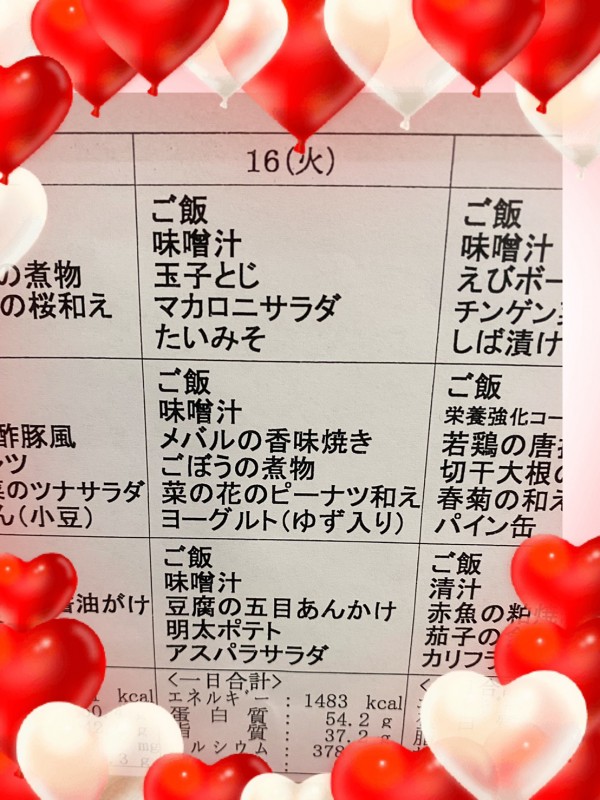 16(火)
の煮物
の桜和え
ご飯
味噌汁
玉子とじ
マカロニサラダ
たいみそ
ご飯
味噌汁
えびボー
チンゲン
しば漬け
酢豚風
ツ
菜のツナサラダ
ん(小豆)
ご飯
味噌汁
メバルの香味焼き
ごぼうの煮物
菜の花のピーナツ和え
ヨーグルト(ゆず入り)
ご飯
栄養強化コー
若鶏の唐
切干大根の
春菊の和え
パイン缶
油がけ
ご飯
味噌汁
豆腐の五目あんかけ
明太ポテト
アスパラサラダ
ご飯
清汁
赤魚の粕
茄子の
カリフラ
kcal
g
mg
g
<一日合計>
エネルギー : 1483 kcal
蛋白質 : 54.2 g
脂質 : 37.2 g
ルシウム : 378